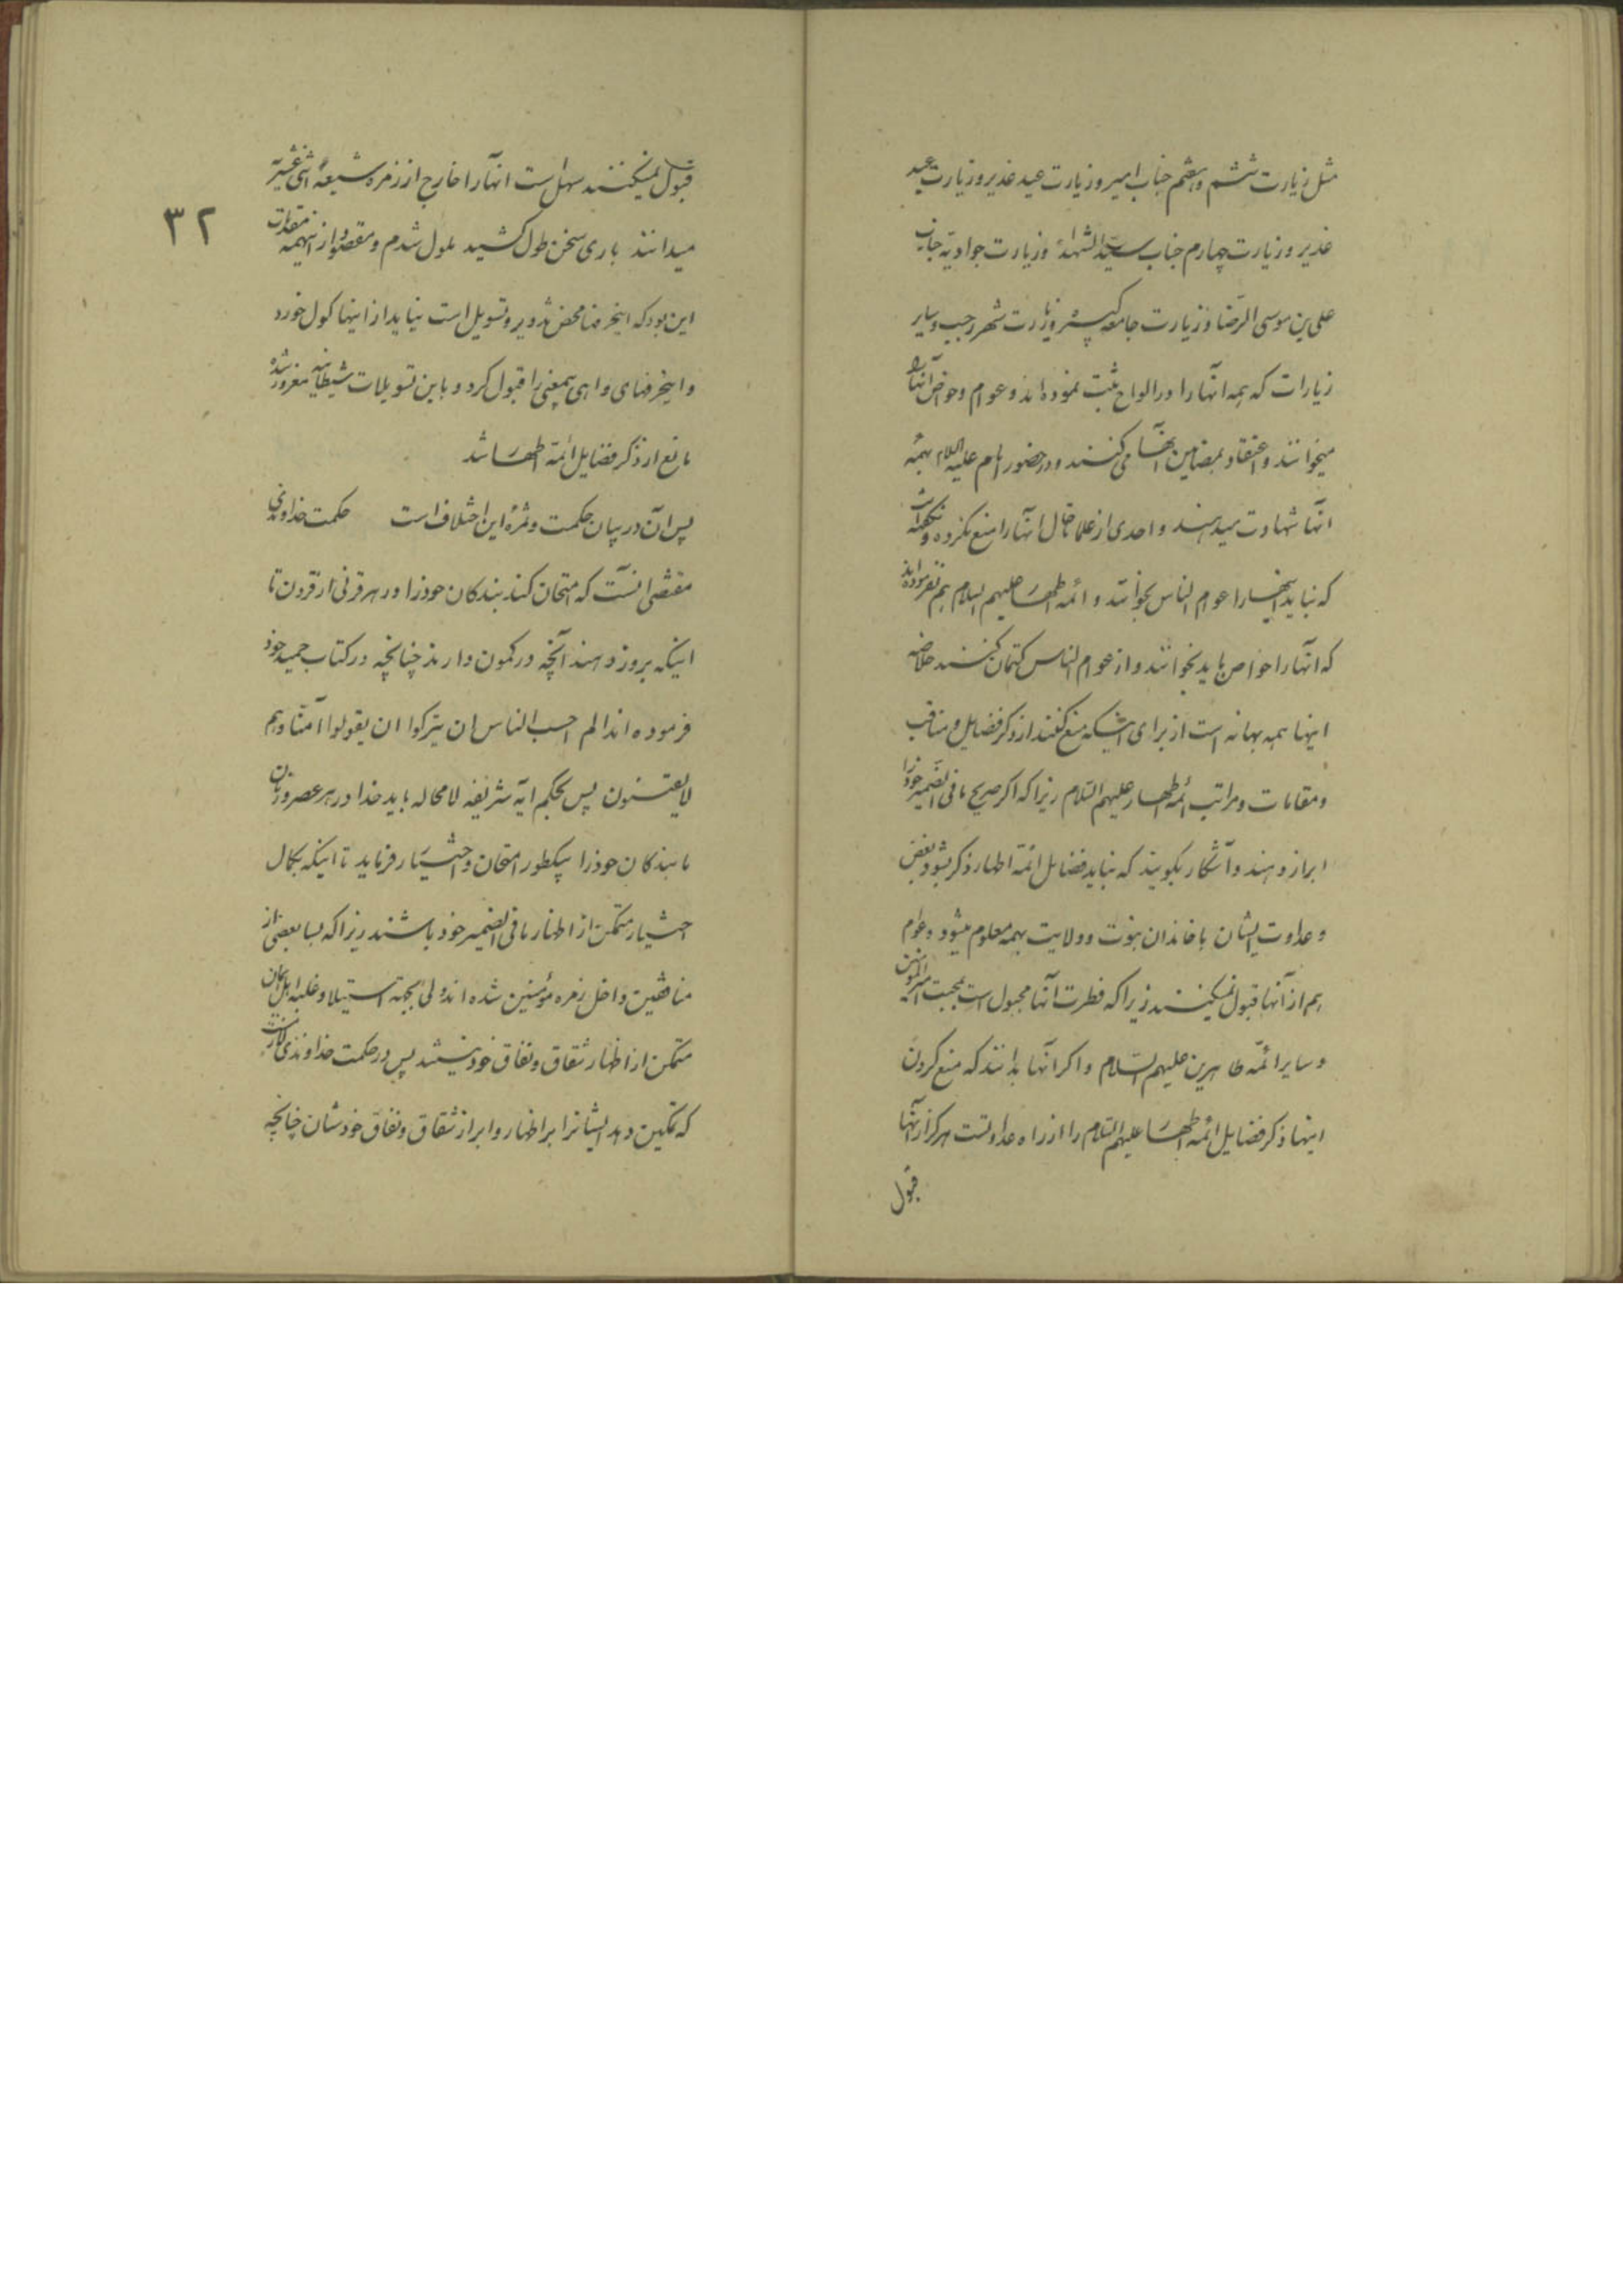 مثل زیارت ششم و هفتم جناب امیر و زیارت عید غدیر و زیارت عید
غدیر و زیارت چهارم جناب سیّد الشهداء و زیارت جوادیّه جناب
علی بن موسی الرّضا و زیارت جامعه کبیره و زیارت شهر رجب و سایر
زیارات که همه آنها را در الواح ثبت نموده‌اند و عوام و خواص آنها را
میخوانند و اعتقاد بمضامین آنها می کنند و در حضور امام علیه السلام بهمه
آنها شهادت میدهند و احدی از علما تا حال آنها را منع نکرده و نگفته است
که نباید اینها را عوام الناس بخوانند و ائمه اطهار علیهم السلام هم نفرموده‌اند
که آنها را خواص باید بخوانند و از عوام الناس کتمان کنند خلاصه
اینها همه بهانه است از برای اینکه منع کنند از ذکر فضایل و مناقب
و مقامات و مراتب ائمه اطهار علیهم السّلام زیرا که اگر صریح ما فی الضمیر خود را
ابراز دهند و آشکار بگویند که نباید فضایل ائمّه اطهار ذکر بشود بغض
و عداوت ایشان با خاندان نبوّت و ولایت بهمه معلوم میشود و عوام
هم از آنها قبول نمیکنند زیرا که فطرت آنها مجبول است بمحبت امیر المؤمنین
و سایر ائمّه طاهرین علیهم السّلام و اگر آنها بدانند که منع کردن
اینها ذکر فضایل ائمه اطهار علیهم السّلام را از راه عداوتست هرگز از آنها
قبول
۳۲
قبول نمیکنند سهل است آنها را خارج از زمره شیعهٔ اثنی عشریّه
میدانند باری سخن طول کشید ملول شدم و مقصود از اینهمه مقدمات
این بود که اینحرفها محض تزویر و تسویل است نباید از اینها کول خورد
و اینحرفهای واهی بیمعنی را قبول کرد و باین تسویلات شیطانیه مغرور شده
مانع از ذکر فضایل ائمّه اطهار شد
پس آن در بیان حکمت و ثمرهٔ این اختلاف است حکمت خداوندی
مقتضی آنست که امتحان کند بندکان خود را در هر قرنی از قرون تا
اینکه بروز دهند آنچه در کمون دارند چنانچه در کتاب حمید خود
فرموده‌اند الم احسب الناس ان یترکوا ان یقولوا آمنّا و هم
لا یفتنون پس بحکم آیه شریفه لامحاله باید خدا در هر عصر و زمان
ما بندکان خود را بیکطور امتحان و اختیار فرماید تا اینکه بکمال
اختیار متمکن از اظهار ما فی الضمیر خود باشند زیرا که بسا بعضی از
منافقین داخل زمره مؤمنین شده‌اند ولی بجهة استیلا و غلبه اهل ایمان
متمکن از اظهار شقاق و نفاق خود نیستند پس در حکمت خداوندی لازم است
که تمکین دهد ایشانرا بر اظهار و ابراز شقاق و نفاق خودشان چنانچه